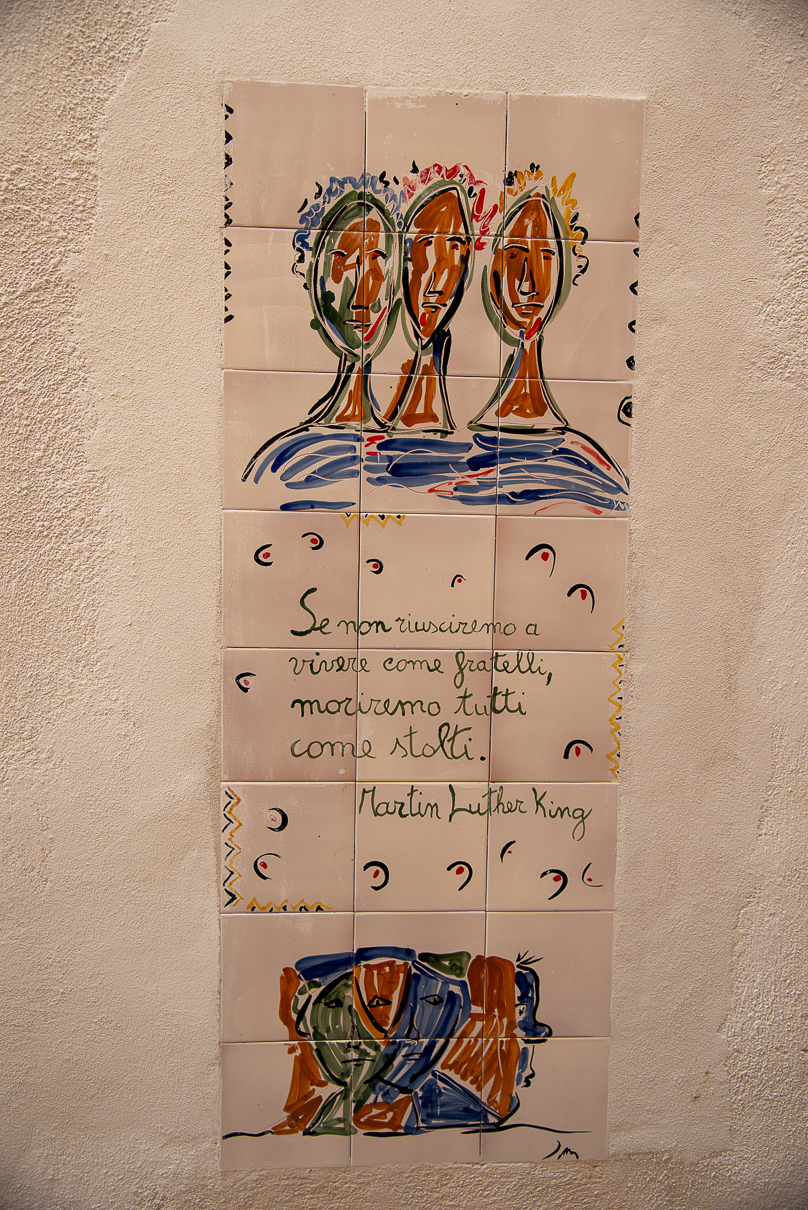 Se non riusciremo a
vivere come fratelli,
moriremo tutti
come stolti.
Martin Luther King